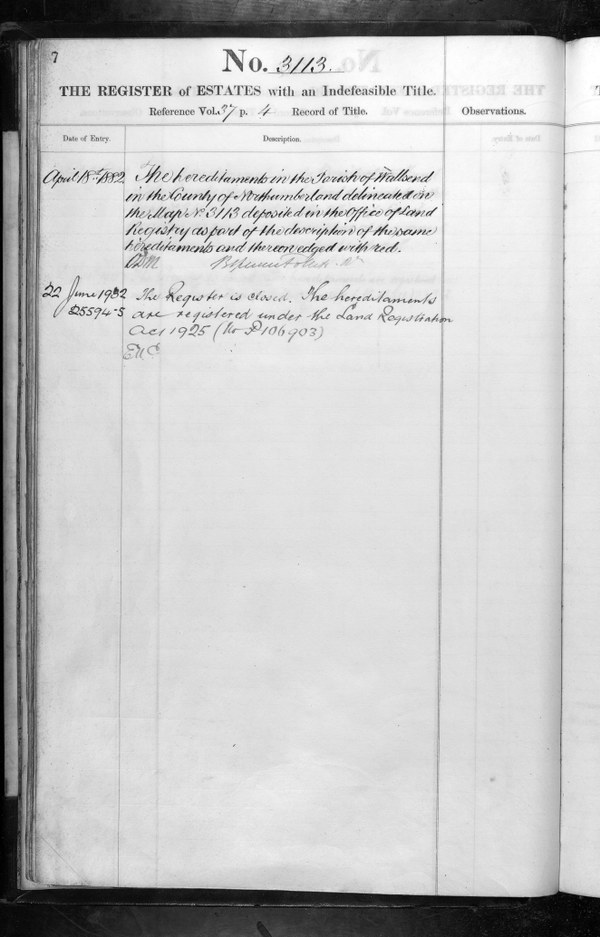 7
No. 3113.
THE REGISTER of ESTATES with an Indefeasible Title.
Reference Vol. 37 p. 4 Record of Title.
Observations.
Date of Entry.
Description.
April 18th 1882
The hereditaments in the Parish of Wallsend
in the County of Northumberland delineated on
the Map No 3113 deposited in the Office of Land
Registry as part of the description of the same
hereditaments and thereon edged with red.
22 June 1932
25594-5
The Register is closed. The hereditaments
are registered under the Land Registration
Act 1925 (No P106903)